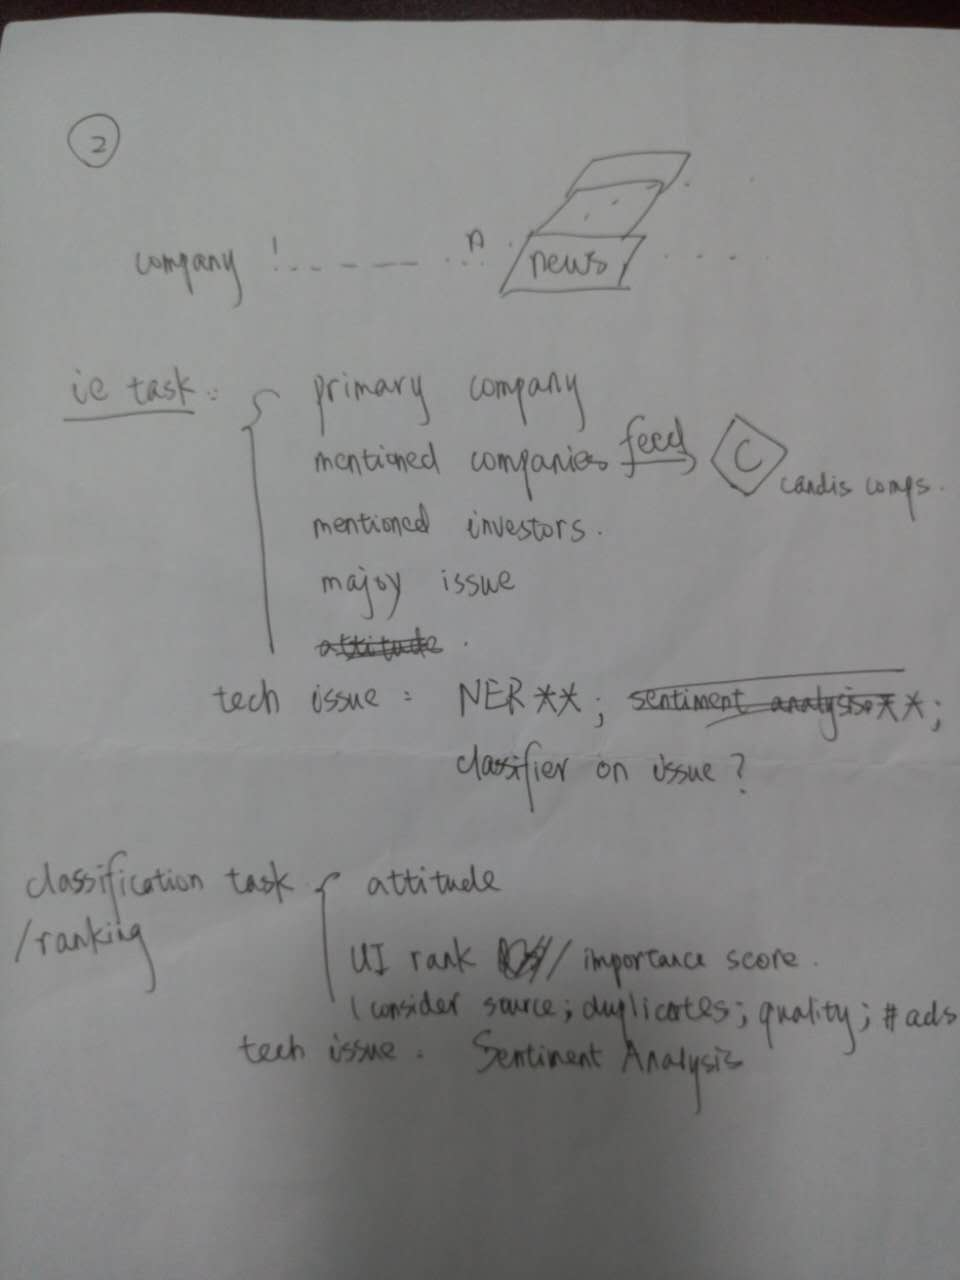 2
company 1 n news
ie task: primary company
mentioned companies feed C candis comps.
mentioned investors.
majoy issue
attitude.
tech issue: NER**; sentiment analysis**;
classifier on issue?
classification task attitude
/ranking
UI rank / importance score.
(consider source; duplicates; quality; #ads
tech issue. Sentiment Analysis